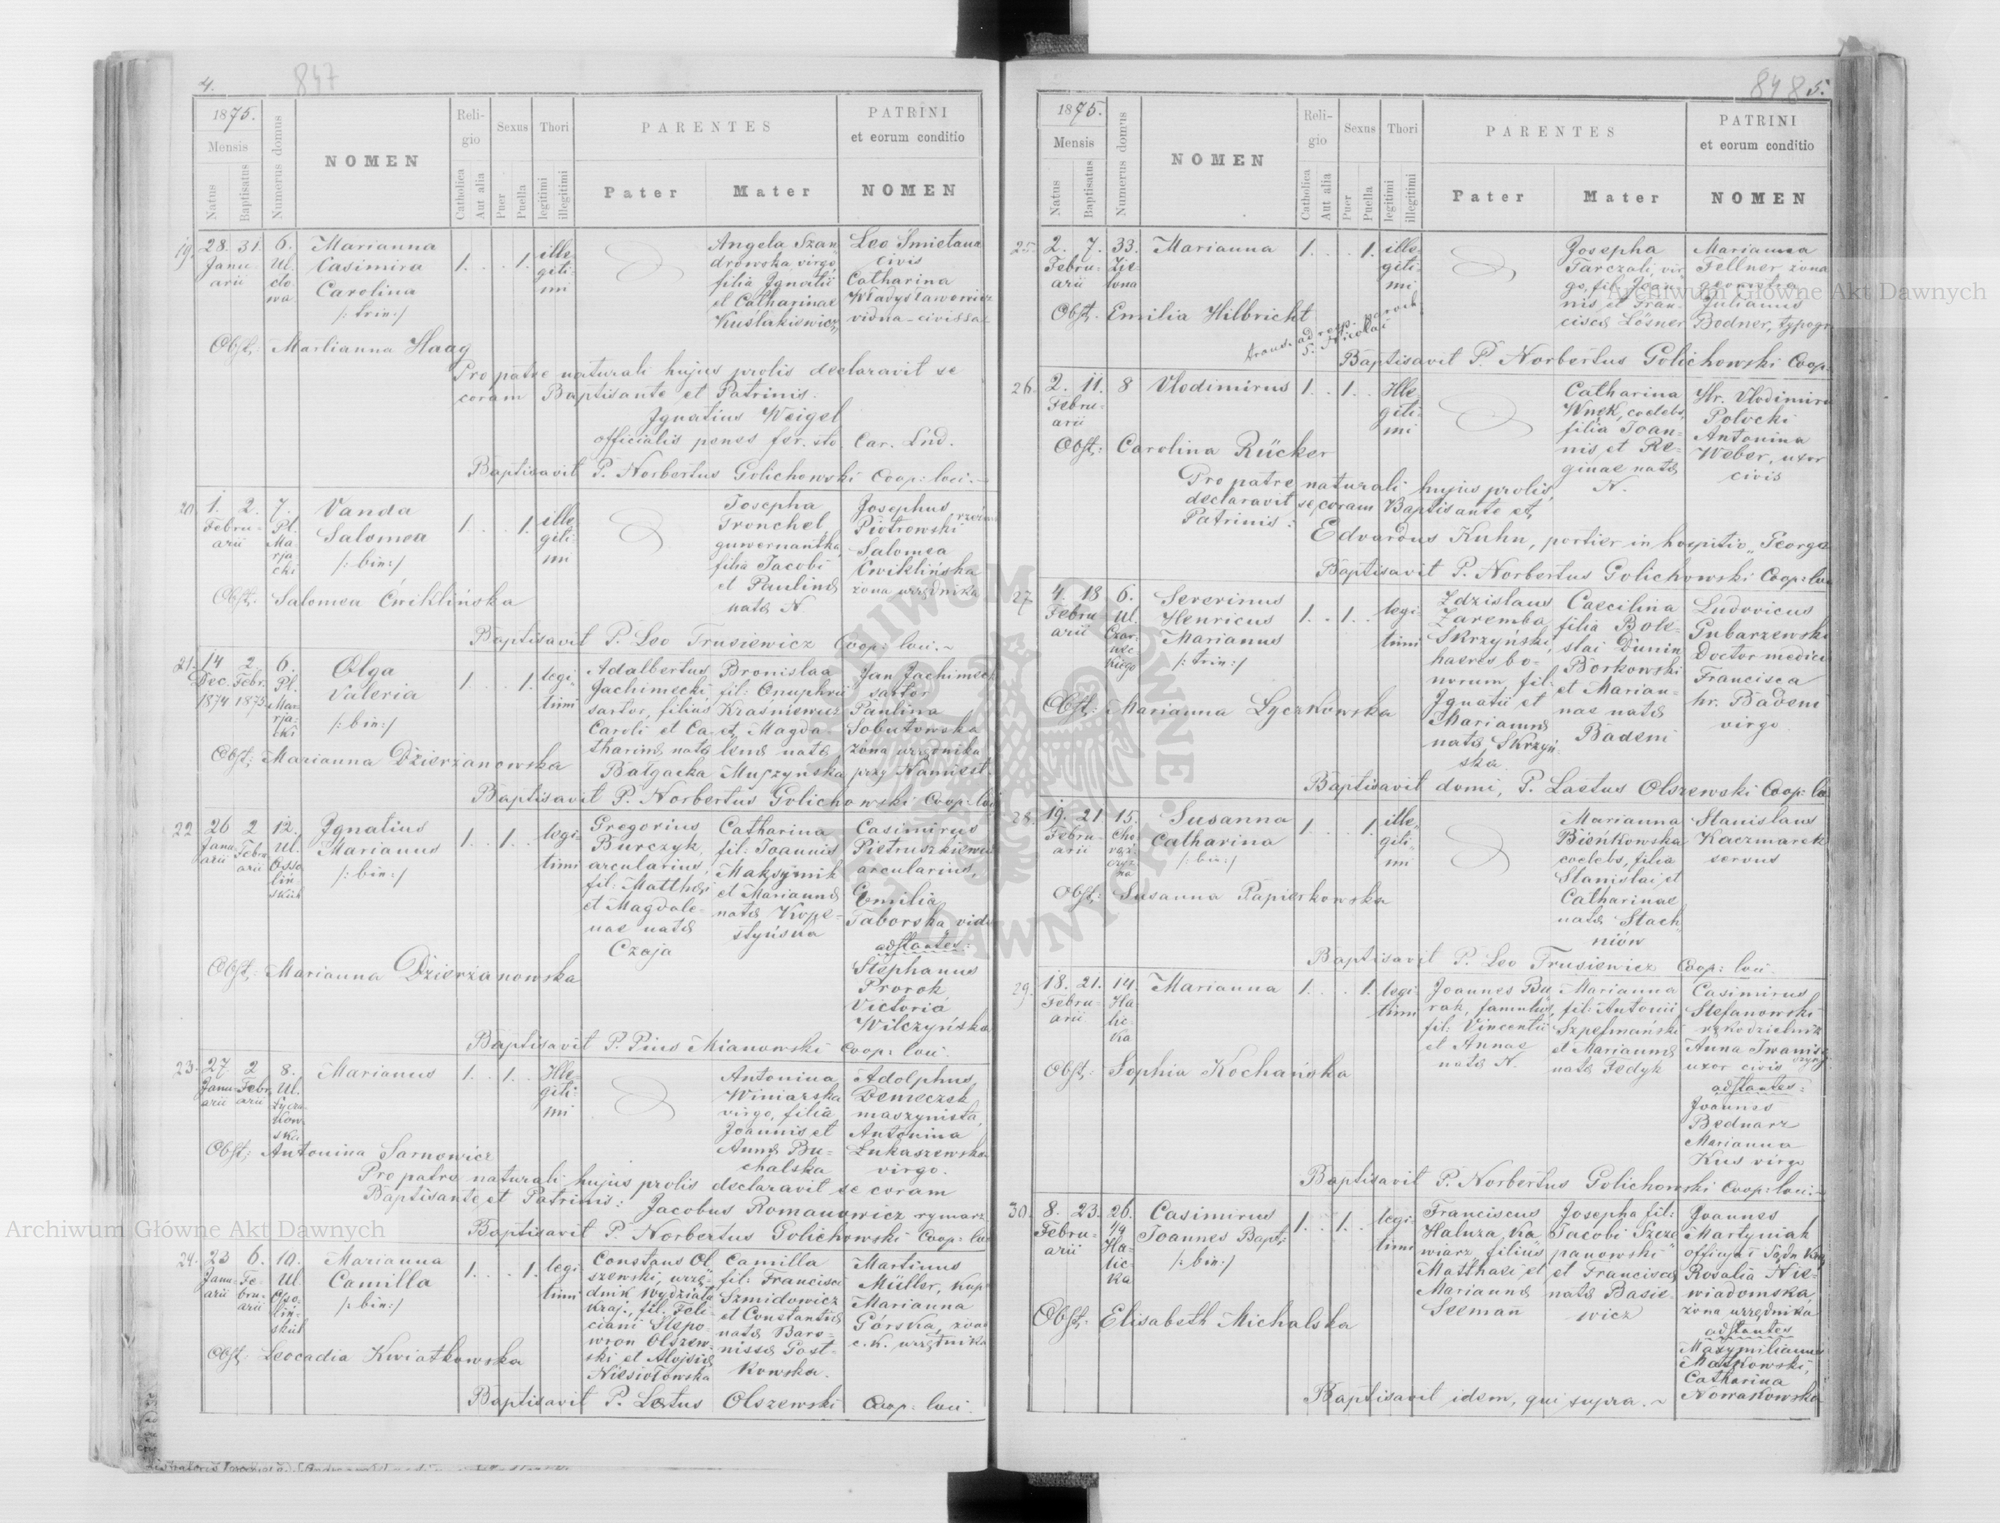 4.
847
1875.
Mensis
Natus
Baptisatus
Numerus domus
NOMEN
Religio
Catholica
Aut alia
Sexus
Puer
Puella
Thori
legitimi
illegitimi
PARENTES
Pater
Mater
PATRINI
et eorum conditio
NOMEN
19.
28. 31.
Janu-
arii
6.
Ul.
Marianna
Casimira
Carolina
/: trin:/
1. . . 1.
ille-
giti-
mi
Angela Szan
drowska, virgo,
filia Ignatii
et Catharinae
Leo Smietana
civis
Catharina
Władysławowicz
vidua civissa
Obst. Marianna Haag
Pro patre naturali hujus prolis declaravit se
coram Baptisante et Patrinis.
Ignatius Weigel
officialis penes Car. Lud.
Baptisavit P. Norbertus Golichowski Coop: loci.
20.
1. 2.
Febru-
arii
7.
Pl.
Ma-
rja-
cki
Vanda
Salomea
/: bin:/
1. . . 1.
ille-
giti-
mi
Josepha
Tronchel,
guwernantka,
filia Jacobi
et Paulinae
natae N
Josephus
Piotrowski
Salomea
Ćwiklińska
żona urzędnika
Obst. Salomea Ćwiklińska
Baptisavit P. Leo Trusiewicz Coop: loci.
21.
14 2
Dec. Febr.
1874 1875.
6.
Pl.
Ma-
rja-
cki
Olga
Valeria
/: bin:/
1. . . 1.
legi
timi
Adalbertus
Jachimecki,
sartor, filius
Caroli et Ca-
tharinae natae
Bałgacka
Bronislaa
fil: Onuphrii
Kraśniewicz
et Magda-
lenae natae
Muszynska
Jan Jachimecki
sartor
Paulina
Sobutowska
żona urzędnika
przy Namiest.
Obst: Marianna Dzierzanowska
Baptisavit P. Norbertus Golichowski Coop: loci
22
26 2
Janu Febru
arii arii
12.
Ul.
Osso
liń
skich
Ignatius
Marianus
/: bin:/
1. . 1. .
legi
timi
Gregorius
Burczyk,
arcularius,
fil: Matthaei
et Magdale-
nae natae
Czaja
Catharina
fil: Joannis
Maksymik
et Mariannae
natae
Casimirus
Pietruszkiewicz
arcularius,
Emilia
Taborska, vidua
adstantes:
Stephanus
Prorok
Victoria
Wilczyńska
Obst: Marianna Dzierżanowska
Baptisavit P. Pius Mianowski Coop: loci.
23.
27 2
Janu- Febr.
arii arii
8.
Ul.
Łycza-
kow-
ska
Marianus
1. . 1. .
Ille-
giti-
mi
Antonina
Winiarska
virgo, filia
Joannis et
Annae Bu-
chalska
Adolphus
maszynista,
Antonina
Łukaszewska
virgo.
Obst: Antonina Sarnowicz
Pro patre naturali hujus prolis declaravit se coram
Baptisante et Patrinis: Jacobus Romanowicz rymarz
Baptisavit P. Norbertus Golichowski Coop: loci
24.
23 6.
Janu- Fe-
arii bru-
arii
10.
Ul.
skich
Marianna
Camilla
/: bin:/
1. . . 1.
legi
timi
Constans Ol
szewski, urzę-
dnik wydziału
kraj., fil. Feli-
ciani Slepo-
wron Olszew-
ski et Aloysiae
Niesiołowska
Camilla
fil: Francisci
Szmidowicz
et Constantiae
natae Baro-
nissae Gost-
kowska.
Martinus
Müller, kup
Marianna
Górska, żona
c.k. urzędnika
Obst: Leocadia Kwiatkowska
Baptisavit P. Laetus Olszewski Coop: loci.
848
5.
1875.
Mensis
Natus
Baptisatus
Numerus domus
NOMEN
Religio
Catholica
Aut alia
Sexus
Puer
Puella
Thori
legitimi
illegitimi
PARENTES
Pater
Mater
PATRINI
et eorum conditio
NOMEN
25.
2. 7.
Febru-
arii
33.
Zie-
lona
Marianna
1. . . 1.
ille-
giti-
mi
Josepha
Tarczali, vir-
go, fil: Joan-
nis et Fran-
ciscae Lösner
Marianna
Fellner, żona
geometra
Julianus
Bodner, typogr.
Obst. Emilia Hilbricht
transs. ad resp. paroch.
S. Nicolai
Baptisavit P. Norbertus Golichowski Coop:
26.
2. 11.
Febru-
arii
8
Vlodimirus
1. . 1. .
Ille-
giti-
mi
Catharina
Wnęk, coelebs,
filia Joan-
nis et Re-
ginae natae
N.
Hr. Vlodimirus
Potocki
Antonina
Weber, uxor
civis
Obst: Carolina Rücker
Pro patre naturali hujus prolis,
declaravit se coram Baptisante et
Patrinis:
Edvardus Kuhn, portier in hospitio „George
Baptisavit P. Norbertus Golichowski Coop: loci
27
4. 18
Febru
arii
6.
Ul.
Czar-
nec-
kiego
Severinus
Henricus
Marianus
/: trin:/
1. . 1. .
legi
timi
Zdzislaus
Zaremba
Skrzyński,
haeres bo-
norum, fil.
Ignatii et
Mariannae
natae Skrzyń
ska.
Caecilina
filia Bole-
slai Dunin
Borkowski
et Marian-
nae natae
Badeni
Ludovicus
Gubarzewski
Doctor medici
Francisca
hr. Badeni
virgo
Obst: Marianna Łyczkowska
Baptisavit domi, P. Laetus Olszewski Coop: loci
28.
19. 21
Febru-
arii
15.
Susanna
Catharina
/: bin:/
1. . . 1.
ille-
giti-
mi
Marianna
Bieńkowska
coelebs, filia
Stanislai et
Catharinae
natae Stach-
niów
Stanislaus
Kaczmarek
servus
Obst: Susanna Papierkowska
Baptisavit P. Leo Trusiewicz Coop: loci.
29.
18. 21.
Febru-
arii
14.
Ha-
lic-
ka
Marianna
1. . . 1.
legi-
timi
Joannes Bu
rak, famulus,
fil: Vincentii
et Annae
natae N.
Marianna
fil: Antonii
Szpelmański
et Mariannae
natae Fedyk
Casimirus
Stefanowski
rękodzielnik
Anna
uxor civis
adstantes:
Joannes
Bednarz
Marianna
Kus virgo
Obst: Sophia Kochańska
Baptisavit P. Norbertus Golichowski Coop: loci.
30.
8. 23.
Febru-
arii
26.
1/4
Ha-
lic-
ka
Casimirus
Joannes Bapt:
/: bin:/
1. . 1. .
legi-
timi
Franciscus
Haluza, ka
wiarz, filius
Matthaei et
Mariannae
Seeman
Josepha fil:
Jacobi Szcze
panowski
et Franciscae
natae Basie-
wicz
Joannes
Martyniak
Rosalia Nie-
wiadomska,
żona urzędnika
adstantes
Maxymilianus
Małkowski,
Catharina
Nowakowska
Obst: Elisabeth Michalska
Baptisavit idem, qui supra.
Archiwum Główne Akt Dawnych
Archiwum Główne Akt Dawnych
ARCHIWUM GŁÓWNE AKT DAWNYCH